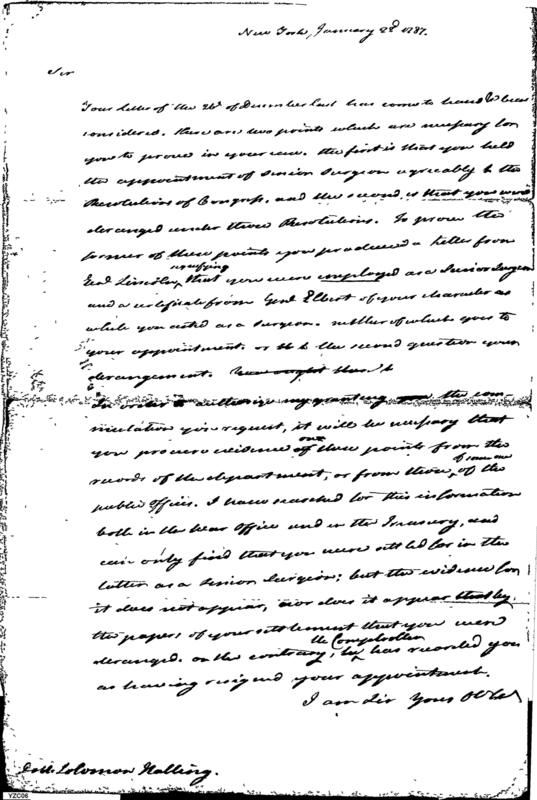 New York, January 22d 1787.
Sir
Your letter of the 26th of December last has come to hand & been
considered. there are two points which are necessary for
you to prove in your case. the first is that you held
the appointment of Senior Surgeon agreeably to the
Resolutions of Congress, and the second is that you were
deranged under those Resolutions. To prove the
former of these points you produced a letter from
Genl Lincoln, certifying that you were employed as a Senior Surgeon
and a certificate from Genl Elbert of your character as
while you acted as a Surgeon. neither of which goes to
your appointment. or to the second question your
derangement.
In order to authorize my granting the com-
mutation you request, it will be necessary that
you procure evidence on these points from the
records of the department, or from those of some one of the
public Offices. I have searched for this information
both in the War Office and in the Treasury, and
can only find that you were settled for in the
latter as a Senior Surgeon; but the evidence for
it does not appear, nor does it appear that by
the papers of your settlement that you were
deranged. on the contrary, the Comptroller has recorded you
as having resigned your appointment.
I am Sir Yours
Solomon Halling.
YZC06